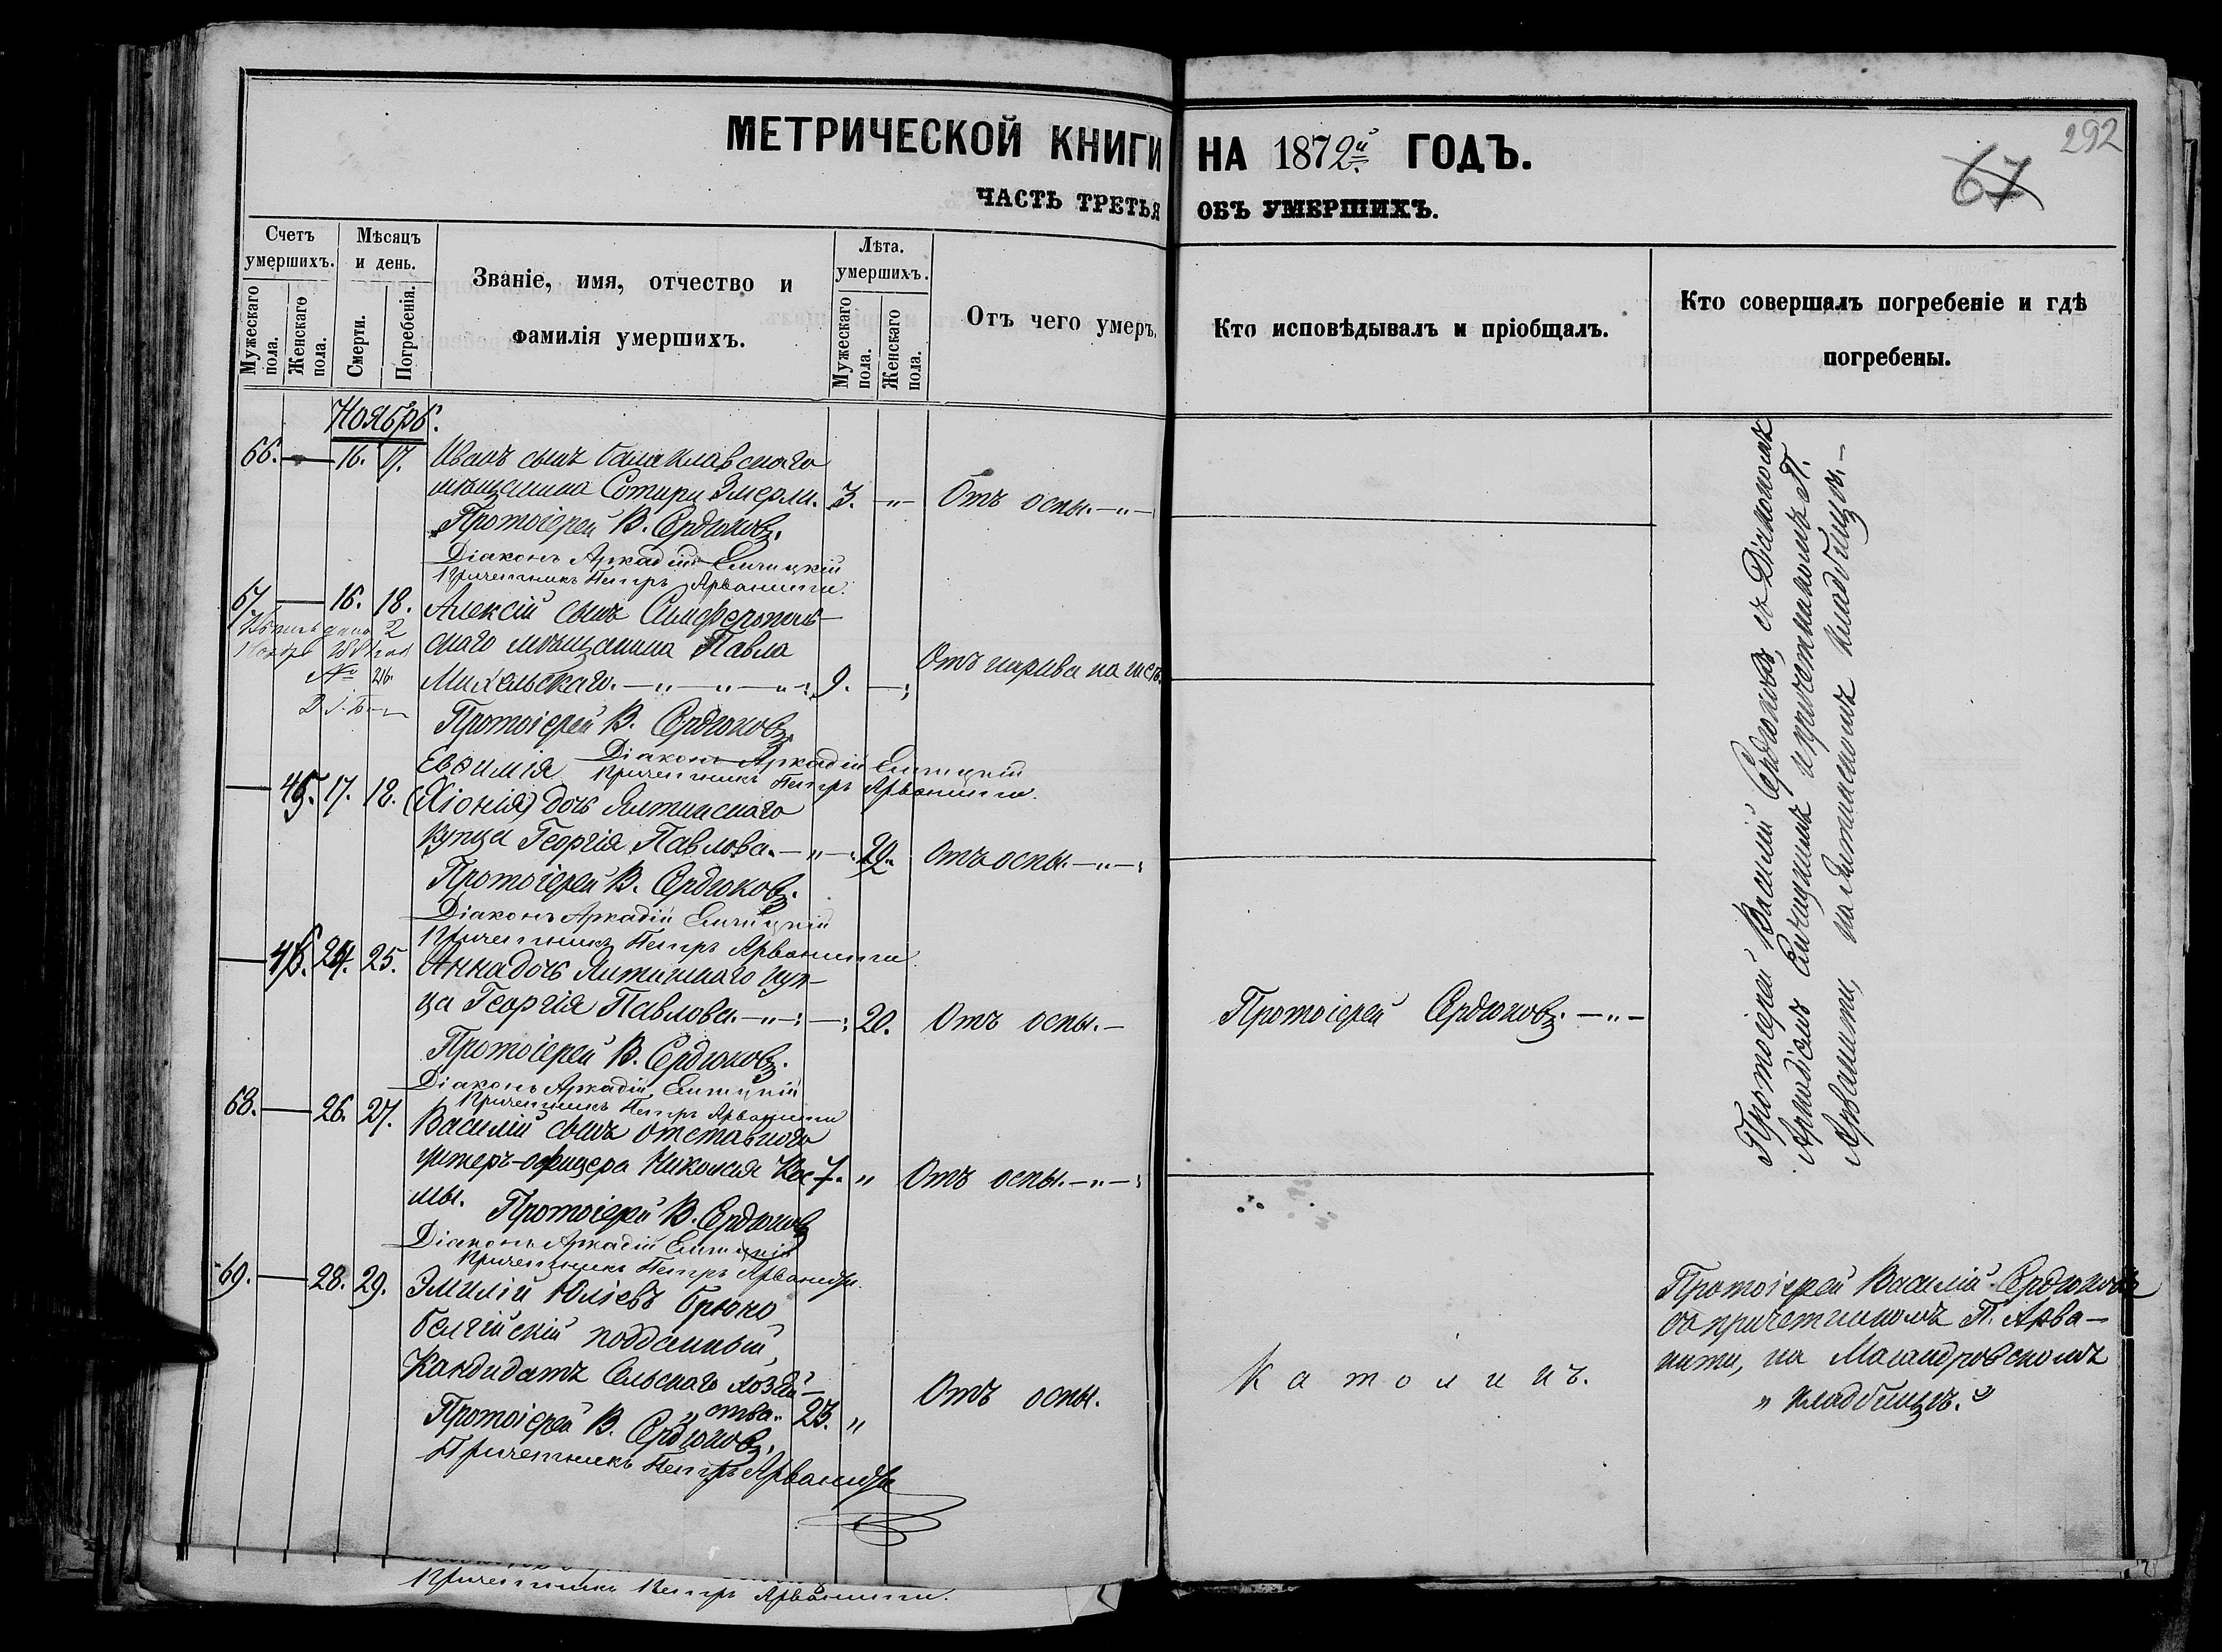 МЕТРИЧЕСКОЙ КНИГИ НА 1872й ГОДЪ.
292
67
ЧАСТЬ ТРЕТЬЯ ОБЪ УМЕРШИХЪ.
Счетъ умершихъ.
Мужескаго пола.
Женскаго пола.
Мѣсяцъ и день.
Смерти.
Погребенія.
Званіе, имя, отчество и
фамилія умершихъ.
Лѣта. умершихъ.
Мужескаго пола.
Женскаго пола.
Отъ чего умеръ.
Кто исповѣдывалъ и пріобщалъ.
Кто совершалъ погребеніе и гдѣ
погребены.
Ноябрь.
66. — 16. 17. Иванъ сынъ балаклавскаго
мѣщанина Сотири Эмерли. 3. —„— Отъ оспы. —„—
Протоіерей В. Сердюковъ.
Діаконъ Аркадій
Причетникъ Петръ Арванити.
67. — 16. 18. Алексій сынъ Симферополь-
скаго мѣщанина Павла
№ 26.
Михельскаго. —„—„—„—: 9. —; Отъ нарыва на
Протоіерей В. Сердюковъ.
Евѳимія
Діаконъ Аркадій
Причетникъ Петръ Арванити.
— 45. 17. 18. (Хіонія) дочь Ялтинскаго
купца Георгія Павлова. —„—: Отъ оспы. —„—:
Протоіерей В. Сердюковъ.
Діаконъ Аркадій
Причетникъ Петръ Арванити
— 46. 24. 25. Анна дочь Ялтинскаго куп-
ца Георгія Павлова. —„—: —: 20. Отъ оспы. — Протоіерей Сердюковъ. —„—
Протоіерей В. Сердюковъ.
Діаконъ Аркадій
Причетникъ Петръ Арванити
68. — 26. 27. Василій сынъ отставного
унтеръ-офицера Николая Кос- 7. „ Отъ оспы. —„—:
мы. Протоіерей В. Сердюковъ
Діаконъ Аркадій
Причетникъ Петръ Арванити.
69. — 28. 29. Эмилій Юліевъ Брюно
бельгійскій подданный,
Кандидатъ Сельскаго хозяй-
ства. 23. „ Отъ оспы. Католикъ.
Протоіерей В. Сердюковъ.
Причетникъ Петръ Арванити
Протоіерей Василій Сердюковъ, съ Діакономъ
Аркадіемъ и причетникомъ П.
Арванити, на Ялтинскомъ кладбищѣ. —
Протоіерей Василій Сердюковъ
съ причетникомъ П. Арва-
нити, на Массандровскомъ
„ кладбищѣ. „
Причетникъ Петръ Арванити.